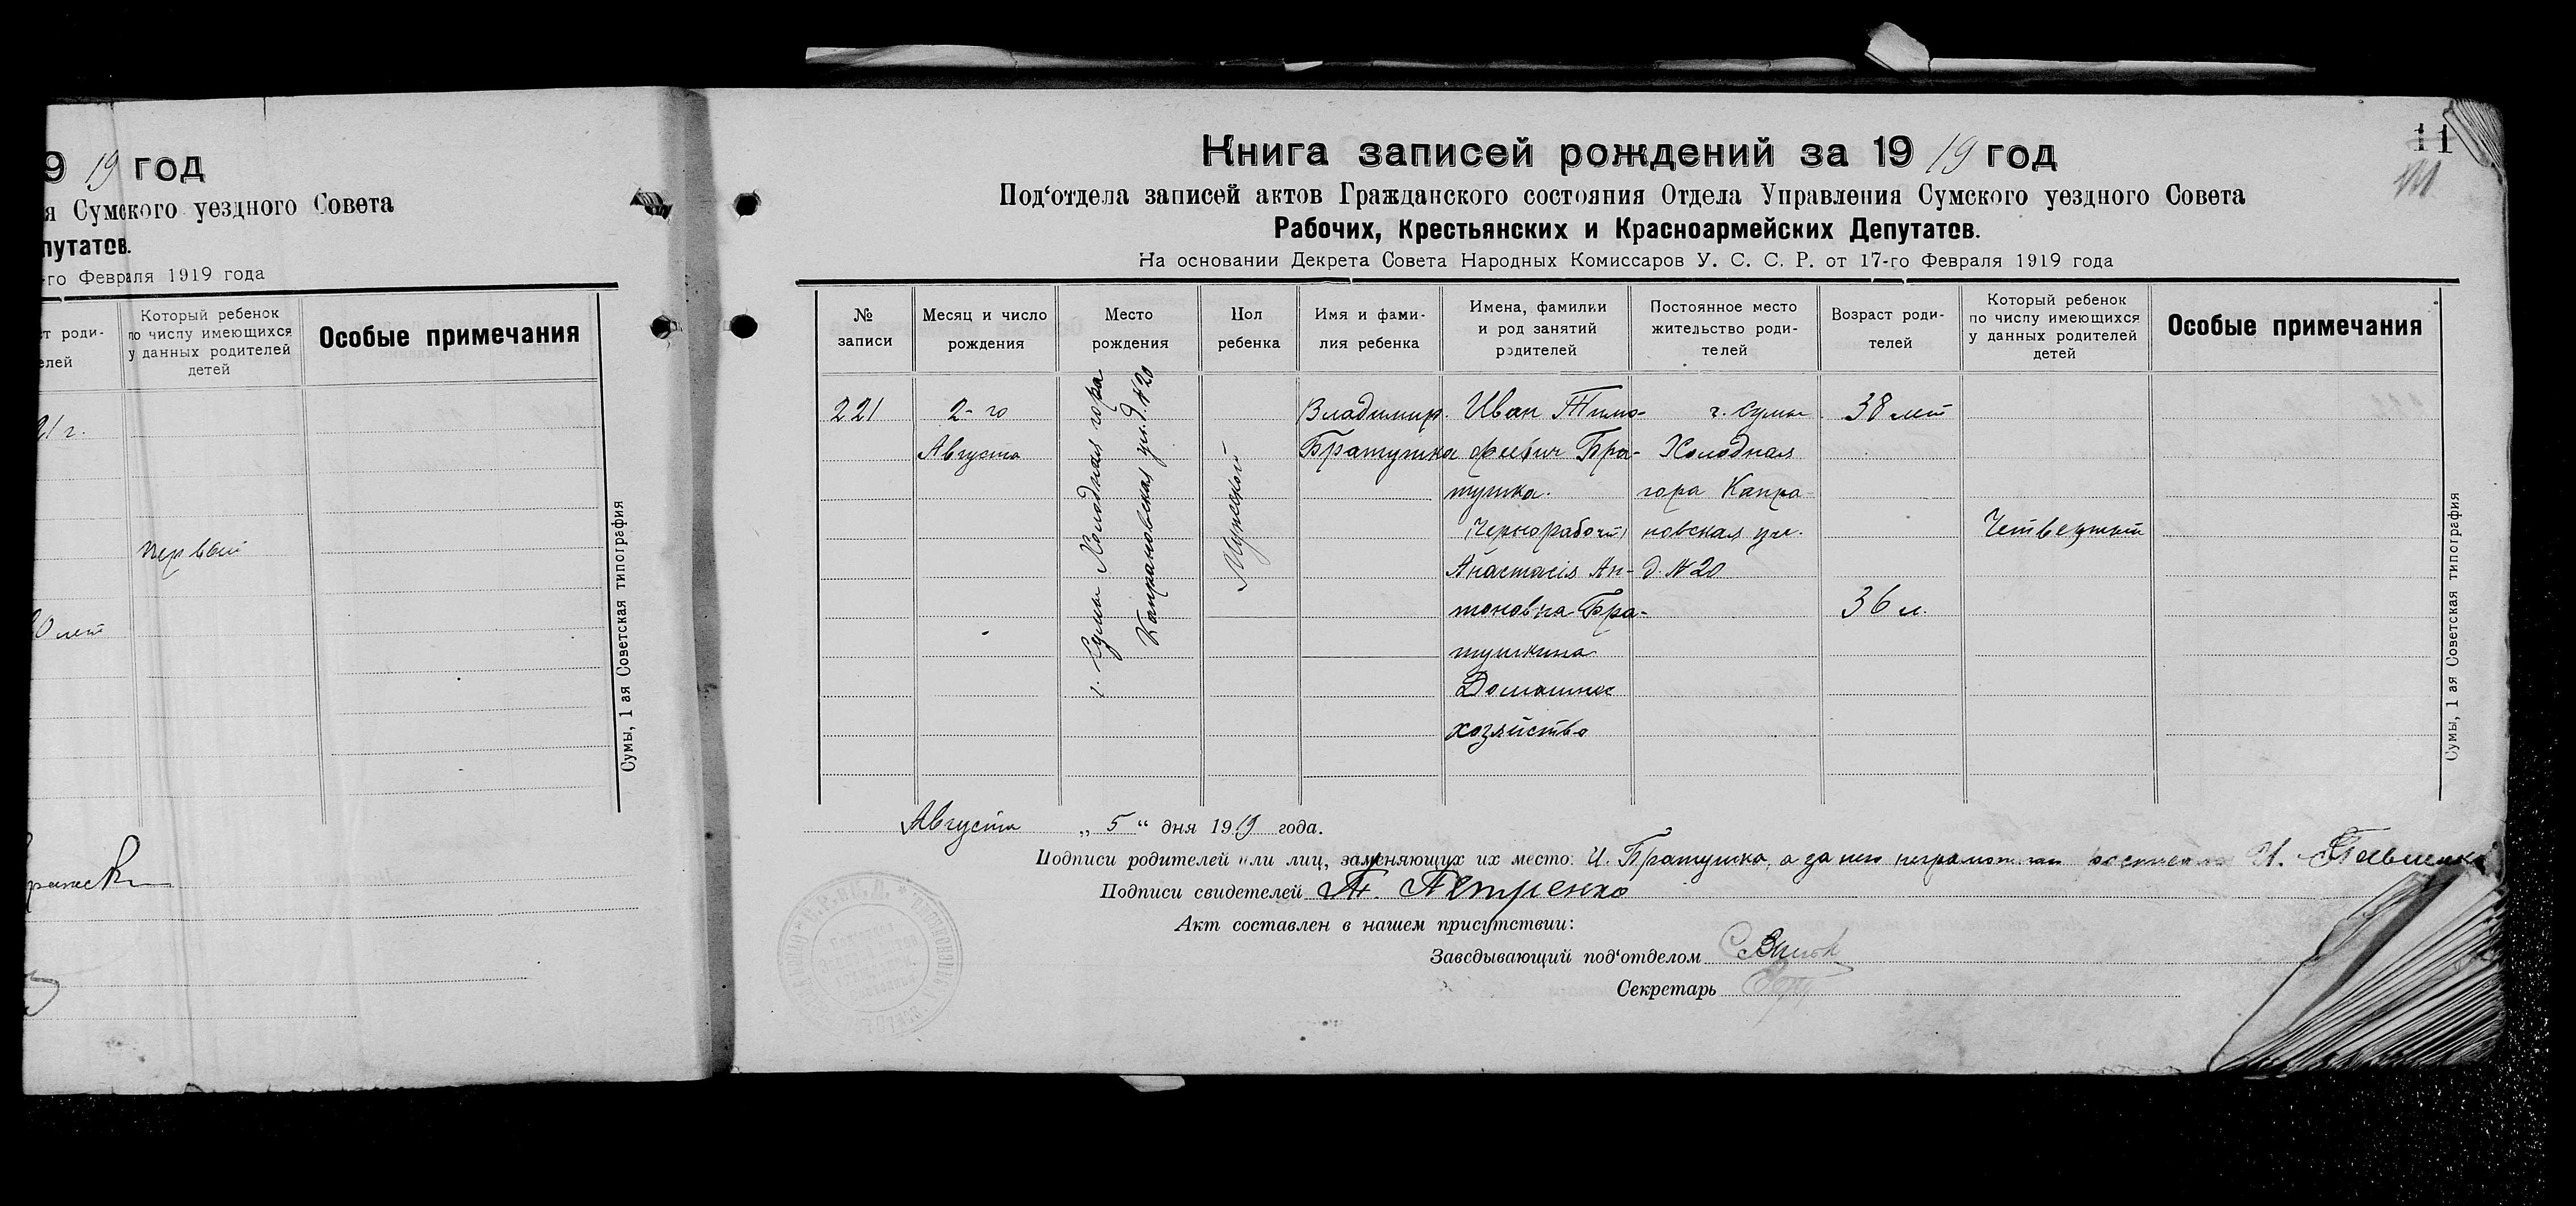 9 19 год
я Сумского уездного Совета
путатов.
-го Февраля 1919 года
ст роди-
елей
Который ребенок
по числу имеющихся
у данных родителей
детей
Особые примечания
21 г.
первый
0 лет
Сумы, 1 ая Советская типография
11
Книга записей рождений за 19 19 год
Под‘отдела записей актов Гражданского состояния Отдела Управления Сумского уездного Совета
Рабочих, Крестьянских и Красноармейских Депутатов.
На основании Декрета Совета Народных Комиссаров У. С. С. Р. от 17-го Февраля 1919 года
№
записи
Месяц и число
рождения
Место
рождения
Пол
ребенка
Имя и фами-
лия ребенка
Имена, фамилии
и род занятий
родителей
Постоянное место
жительство роди-
телей
Возраст роди-
телей
Который ребенок
по числу имеющихся
у данных родителей
детей
Особые примечания
221
2-го
Августа
г. Сумы Холодная гора
Капрановская ул. д. № 20
Мужеской
Владимир
Братушка
Иван Тимо-
феевич Бра-
тушка.
Чернорабочий
Анастасія Ан-
тоновна Бра-
тушкина
Домашнее
хозяйство
г. Сумы
Холодная
гора Капра-
новская ул.
д. № 20
38 лет
36 л.
Четвертый
Сумы, 1 ая Советская типография
Августа „ 5 “ дня 19 19 года.
Подписи родителей или лиц, заменяющих их место: И. Братушка, а за него неграмотного И.
Подписи свидетелей Петренко
Акт составлен в нашем присутствии:
Заведывающий под‘отделом
Секретарь